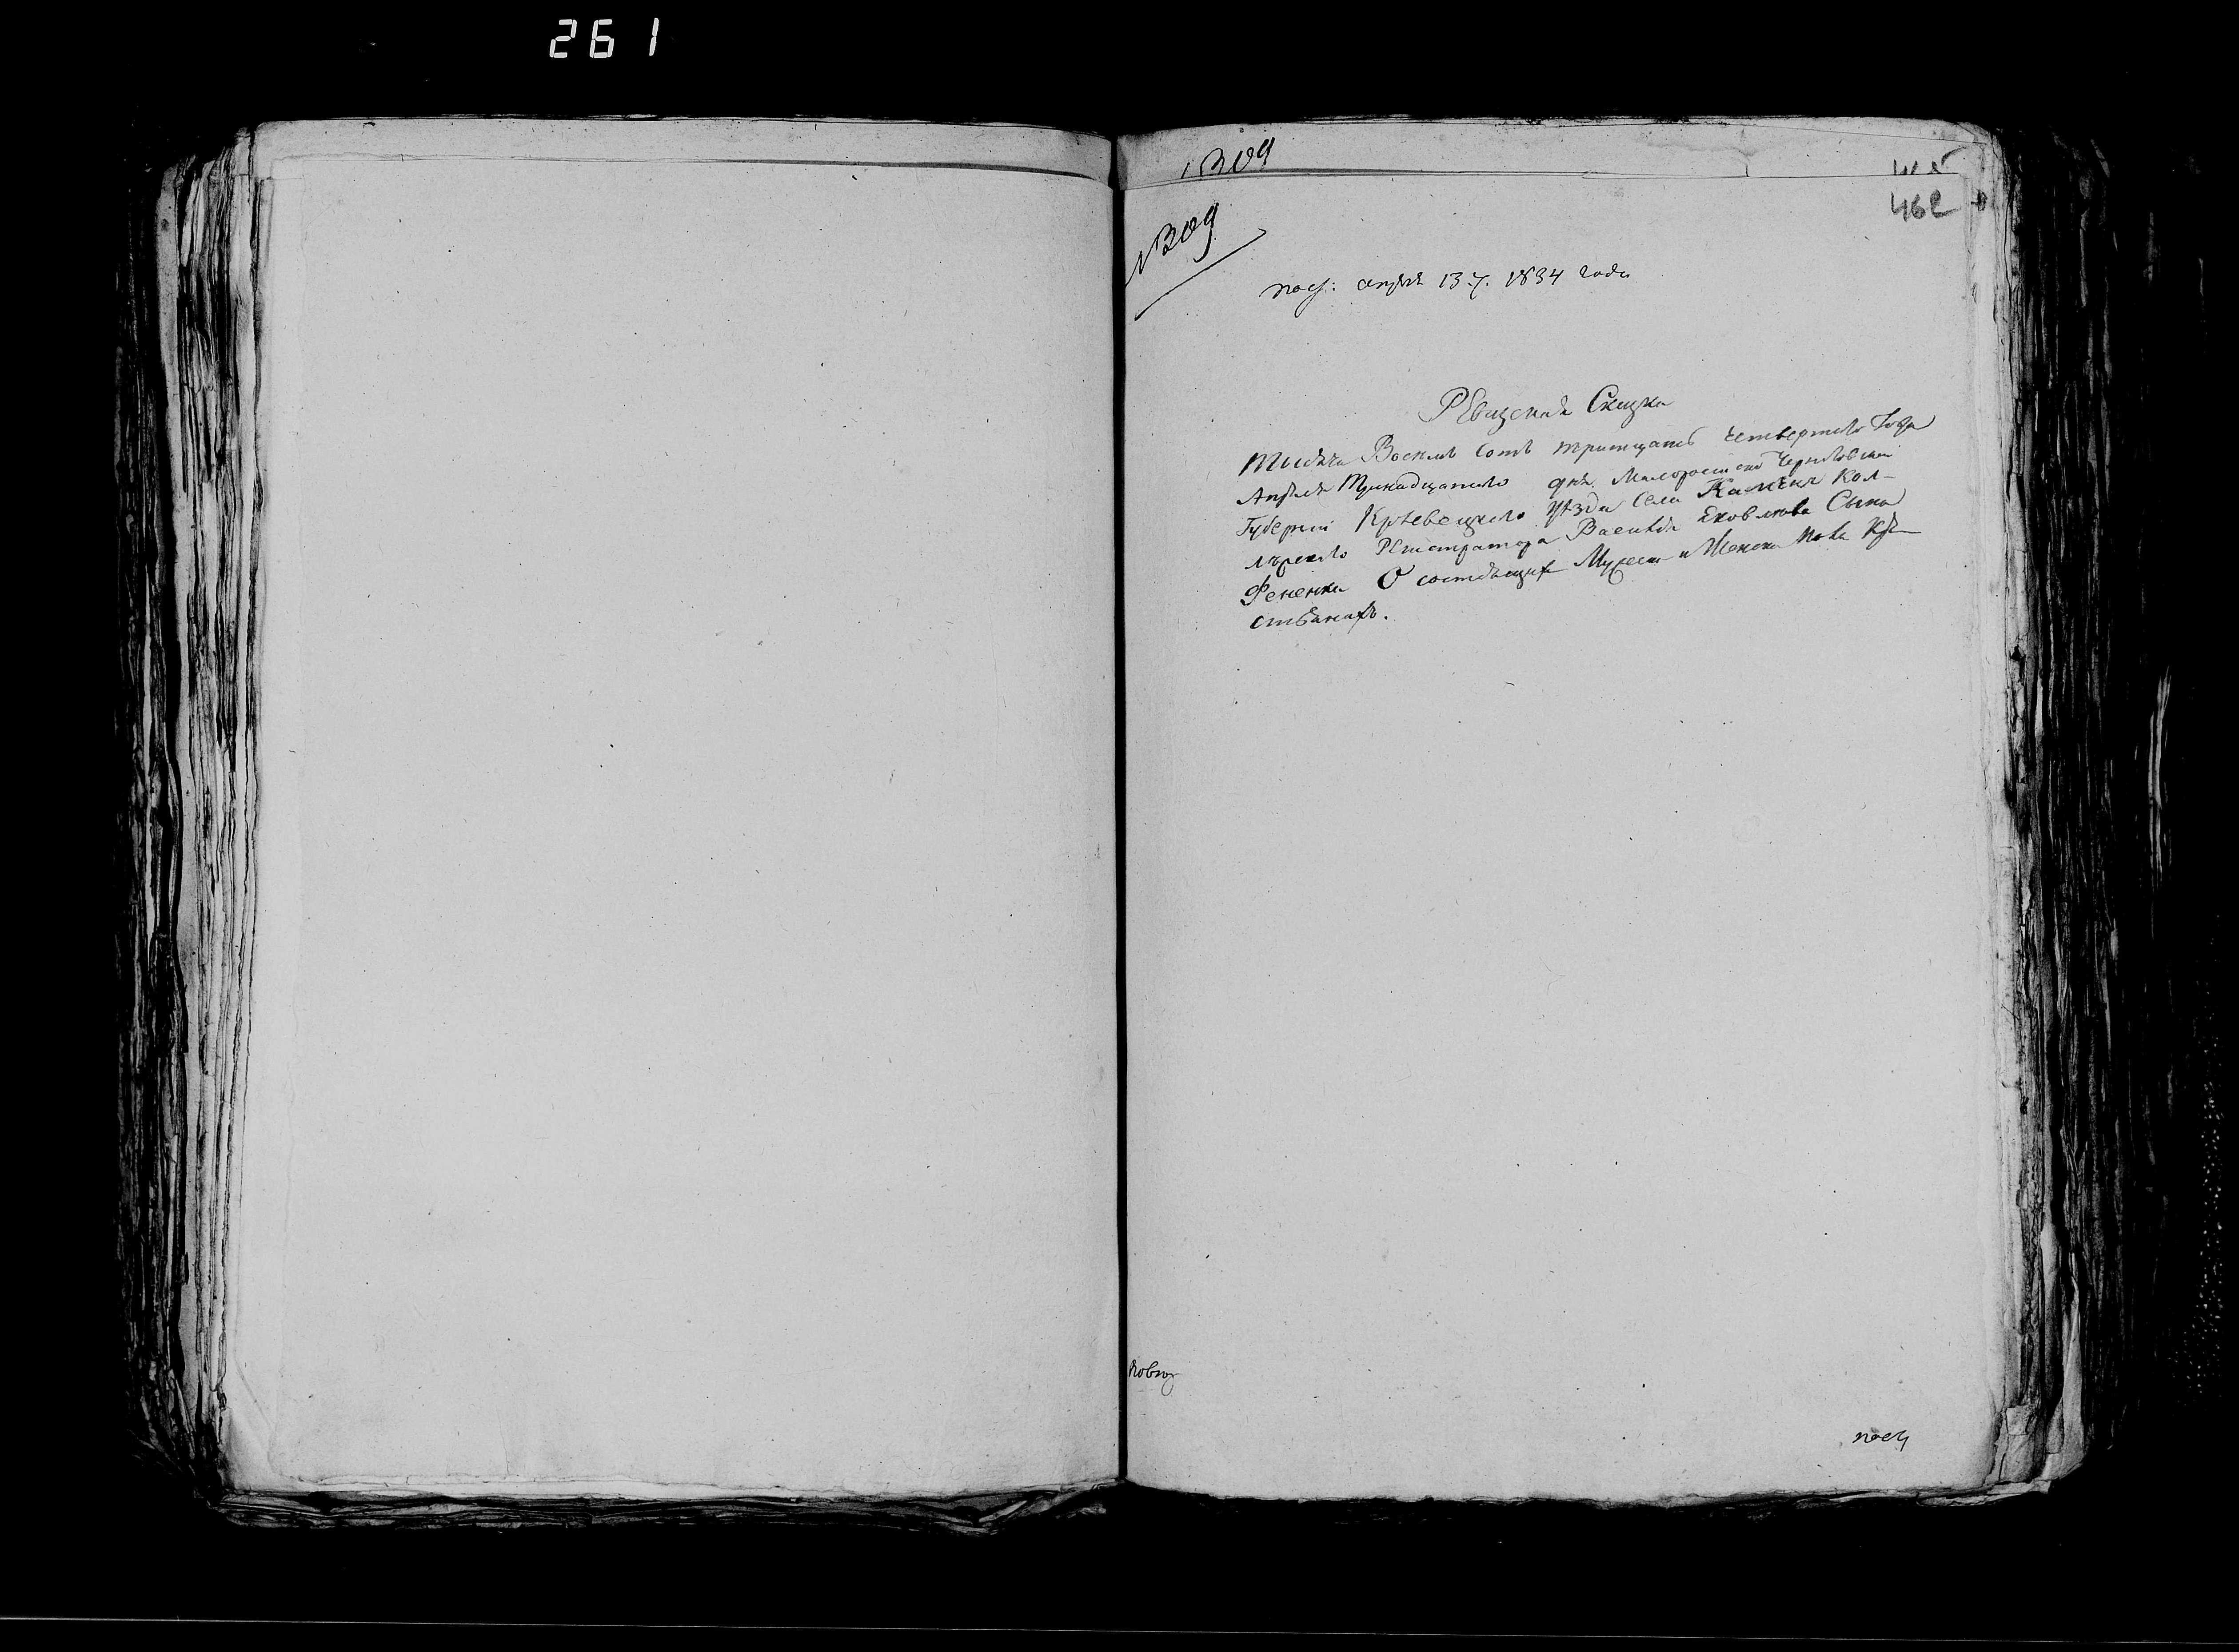 261
309
№309
462
пол: апреля 13 ч. 1834 года
Ревизская Сказка
Тысяча Восемь Сотъ тритцать четвертого Года
Апреля Тринадцатого дня Малоросийской Черниговской
Губернии Кролевецкого уѣзда села Каменя Кол-
лежского Регистратора Василия Яковлева Сына
Фененка О состоящихъ Мужеска и Женска Пола Кре-
стьянахъ.